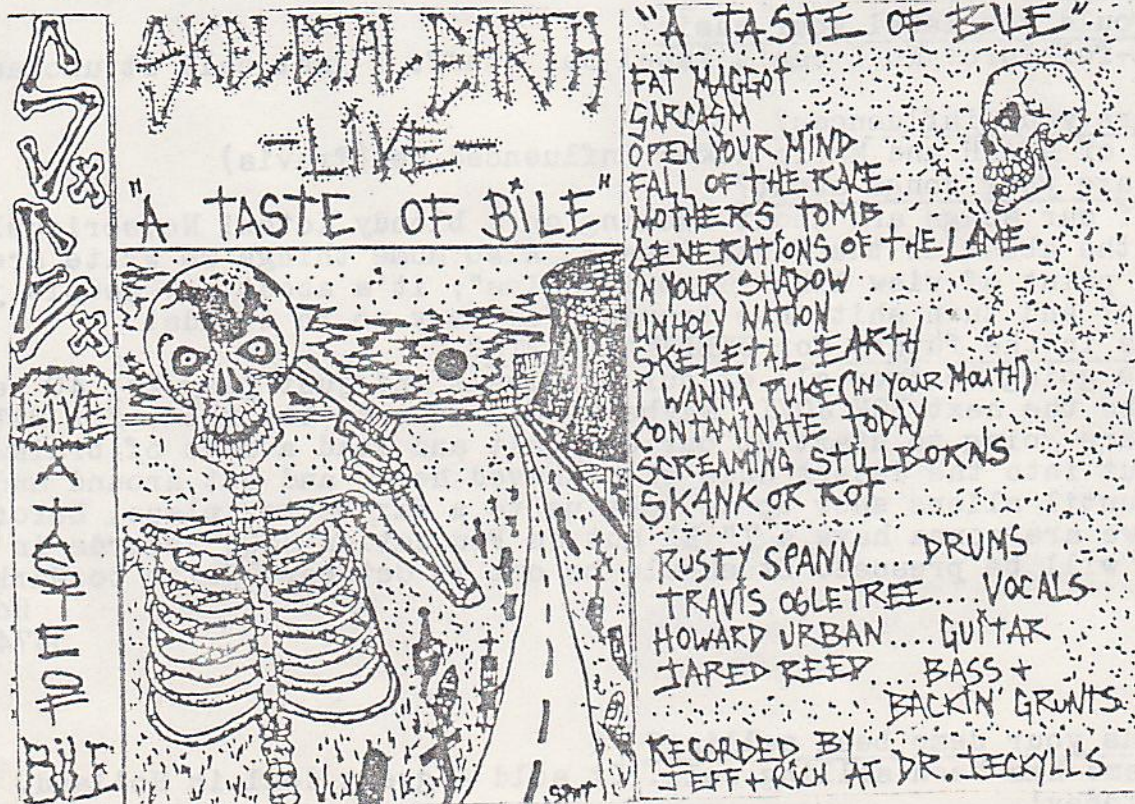 LIVE
A TASTE OF
BILE
SKELETAL EARTH
-LIVE-
"A TASTE OF BILE"
"A TASTE OF BILE"
FAT MAGGOT
SARCASM
OPEN YOUR MIND
FALL OF THE RACE
MOTHERS TOMB
GENERATIONS OF THE LAME
IN YOUR SHADOW
UNHOLY NATION
SKELETAL EARTH
I WANNA PUKE (IN YOUR MOUTH)
CONTAMINATE TODAY
SCREAMING STILLBORNS
SKANK OR ROT
RUSTY SPANN DRUMS
TRAVIS OGLETREE... VOCALS
HOWARD URBAN... GUITAR
JARED REED... BASS +
BACKIN' GRUNTS
RECORDED BY
JEFF + RICH AT DR. JECKYLL'S